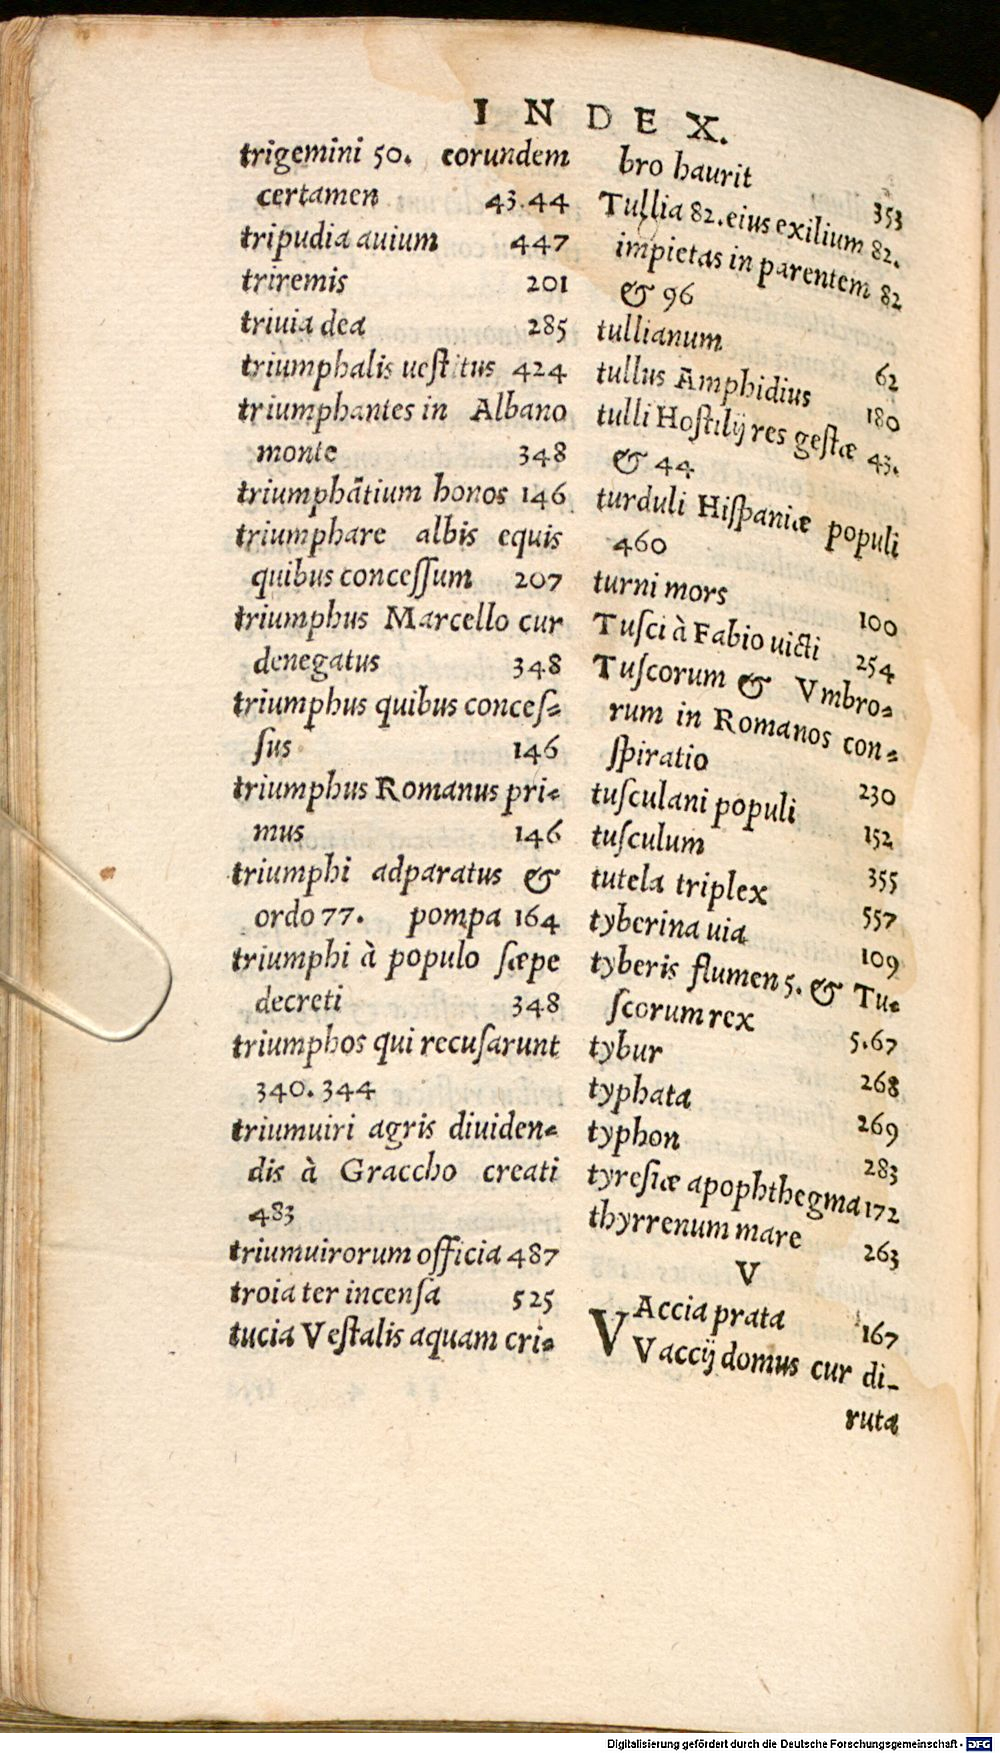 INDEX.
trigemini 50. eorundem
certamen 43.44
tripudia auium 447
triremis 201
triuia dea 285
triumphalis ueſtitus 424
triumphantes in Albano
monte 348
triumphãtium honos 146
triumphare albis equis
quibus conceſſum 207
triumphus Marcello cur
denegatus 348
triumphus quibus conceſ=
ſus 146
triumphus Romanus pri=
mus 146
triumphi adparatus &
ordo 77. pompa 164
triumphi à populo ſæpe
decreti 348
triumphos qui recuſarunt
340. 344
triumuiri agris diuiden=
dis à Graccho creati
483
triumuirorum officia 487
troia ter incenſa 525
tucia Veſtalis aquam cri=
bro haurit 353
Tullia 82. eius exilium 82.
impietas in parentem 82
& 96
tullianum 62
tullus Amphidius 180
tulli Hoſtilij res geſtæ 43.
& 44
turduli Hiſpaniæ populi
460
turni mors 100
Tuſci à Fabio uicti 254
Tuſcorum & Vmbro=
rum in Romanos con=
ſpiratio 230
tuſculani populi 152
tuſculum 355
tutela triplex 557
tyberina uia 109
tyberis flumen 5. & Tu=
ſcorum rex 5.67
tybur 268
typhata 269
typhon 283
tyreſiæ apophthegma 172
thyrrenum mare 263
V
VAccia prata 167
Vaccij domus cur di-
rutæ
Digitalisierung gefördert durch die Deutsche Forschungsgemeinschaft - DFG